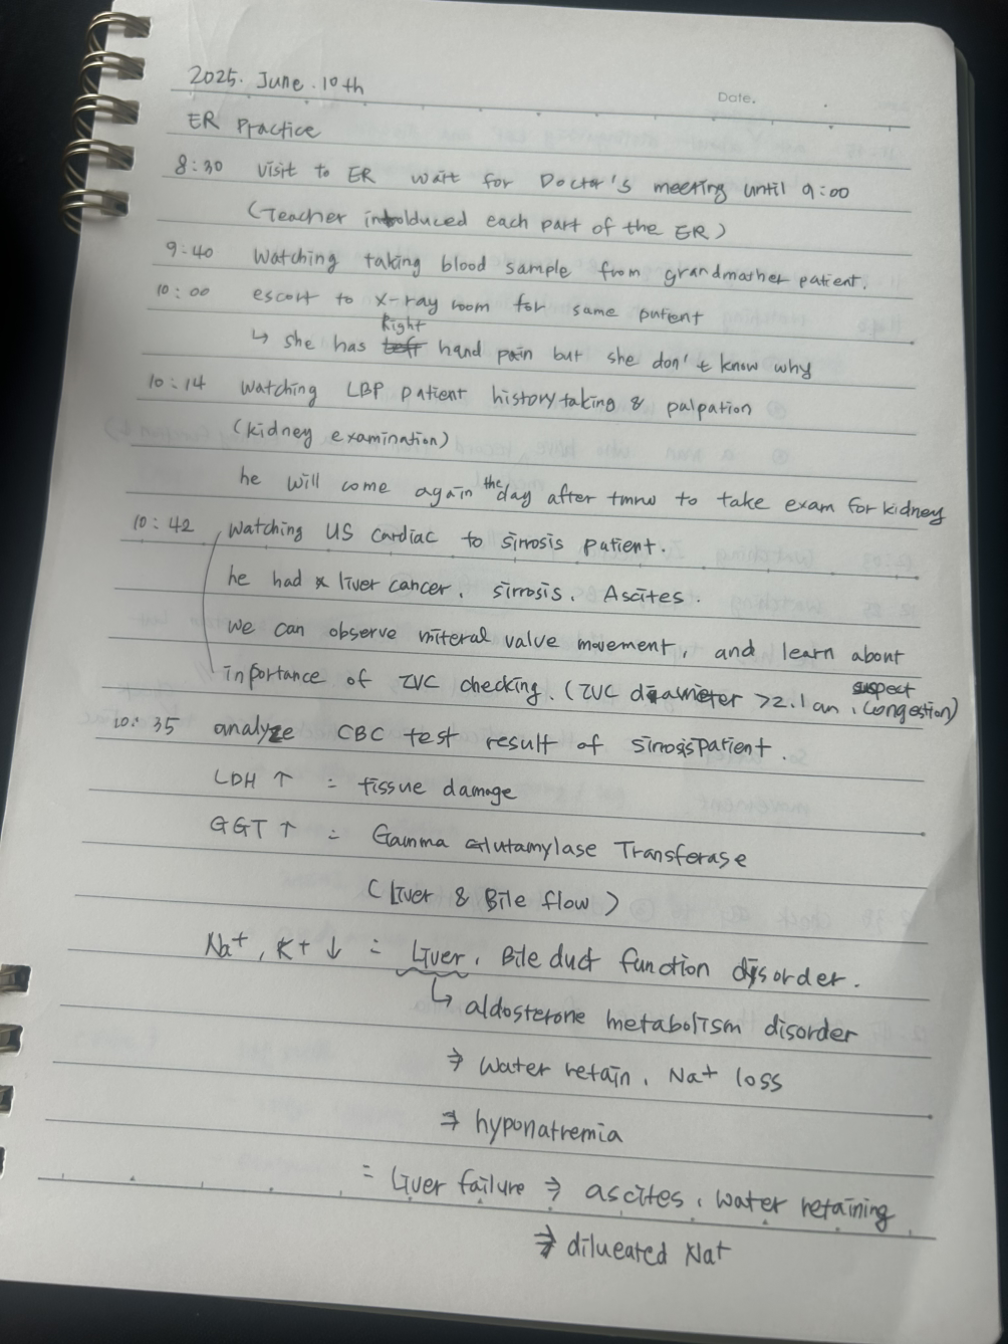 Date.
2025. June. 10th
ER Practice
8:30 visit to ER wait for Doctor's meeting until 9:00
(Teacher intolduced each part of the ER)
9:40 Watching taking blood sample from grandmother patient.
10:00 escort to x-ray room for same patient
Right
↳ she has left hand pain but she don't know why
10:14 Watching LBP patient history taking & palpation
(kidney examination)
he will come again the day after tmrw to take exam for kidney
10:42 Watching US cardiac to sirrosis patient.
he had liver cancer, sirrosis, Ascites.
we can observe miteral valve movement, and learn about
inportance of IVC checking. (IVC diameter >2.1 cm, suspect congestion)
10:35 analyze CBC test result of sirrosis patient.
LDH ↑ = tissue damage
GGT ↑ = Gamma Glutamylase Transferase
(Liver & Bile flow)
Na+, K+ ↓ = Liver, Bile duct function disorder.
↳ aldosterone metabolism disorder
⇒ Water retain, Na+ loss
⇒ hyponatremia
= Liver failure ⇒ ascites, water retaining
⇒ dilueated Na+